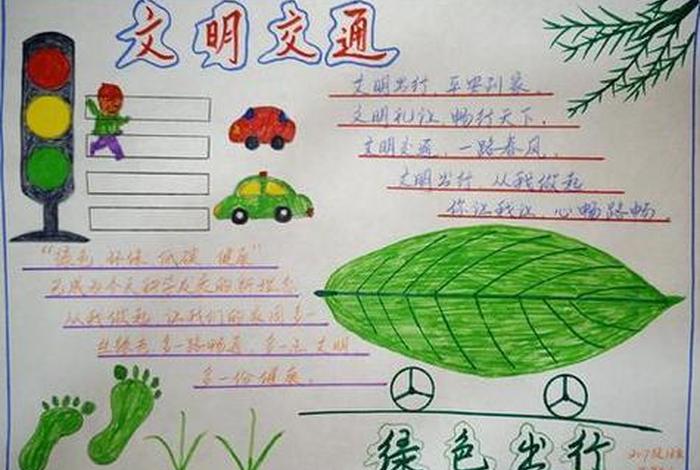 文明交通
文明出行、平安到家。
文明礼让、畅行天下。
文明交通、一路春风。
文明出行 从我做起
你让我让、心畅路畅。
“绿色 环保 低碳 健康”
已成为今天科学发展的新理念
从我做起 让我们的家园多一
丝绿色 多一路畅通、多一点 文明
多一份健康。
绿色出行